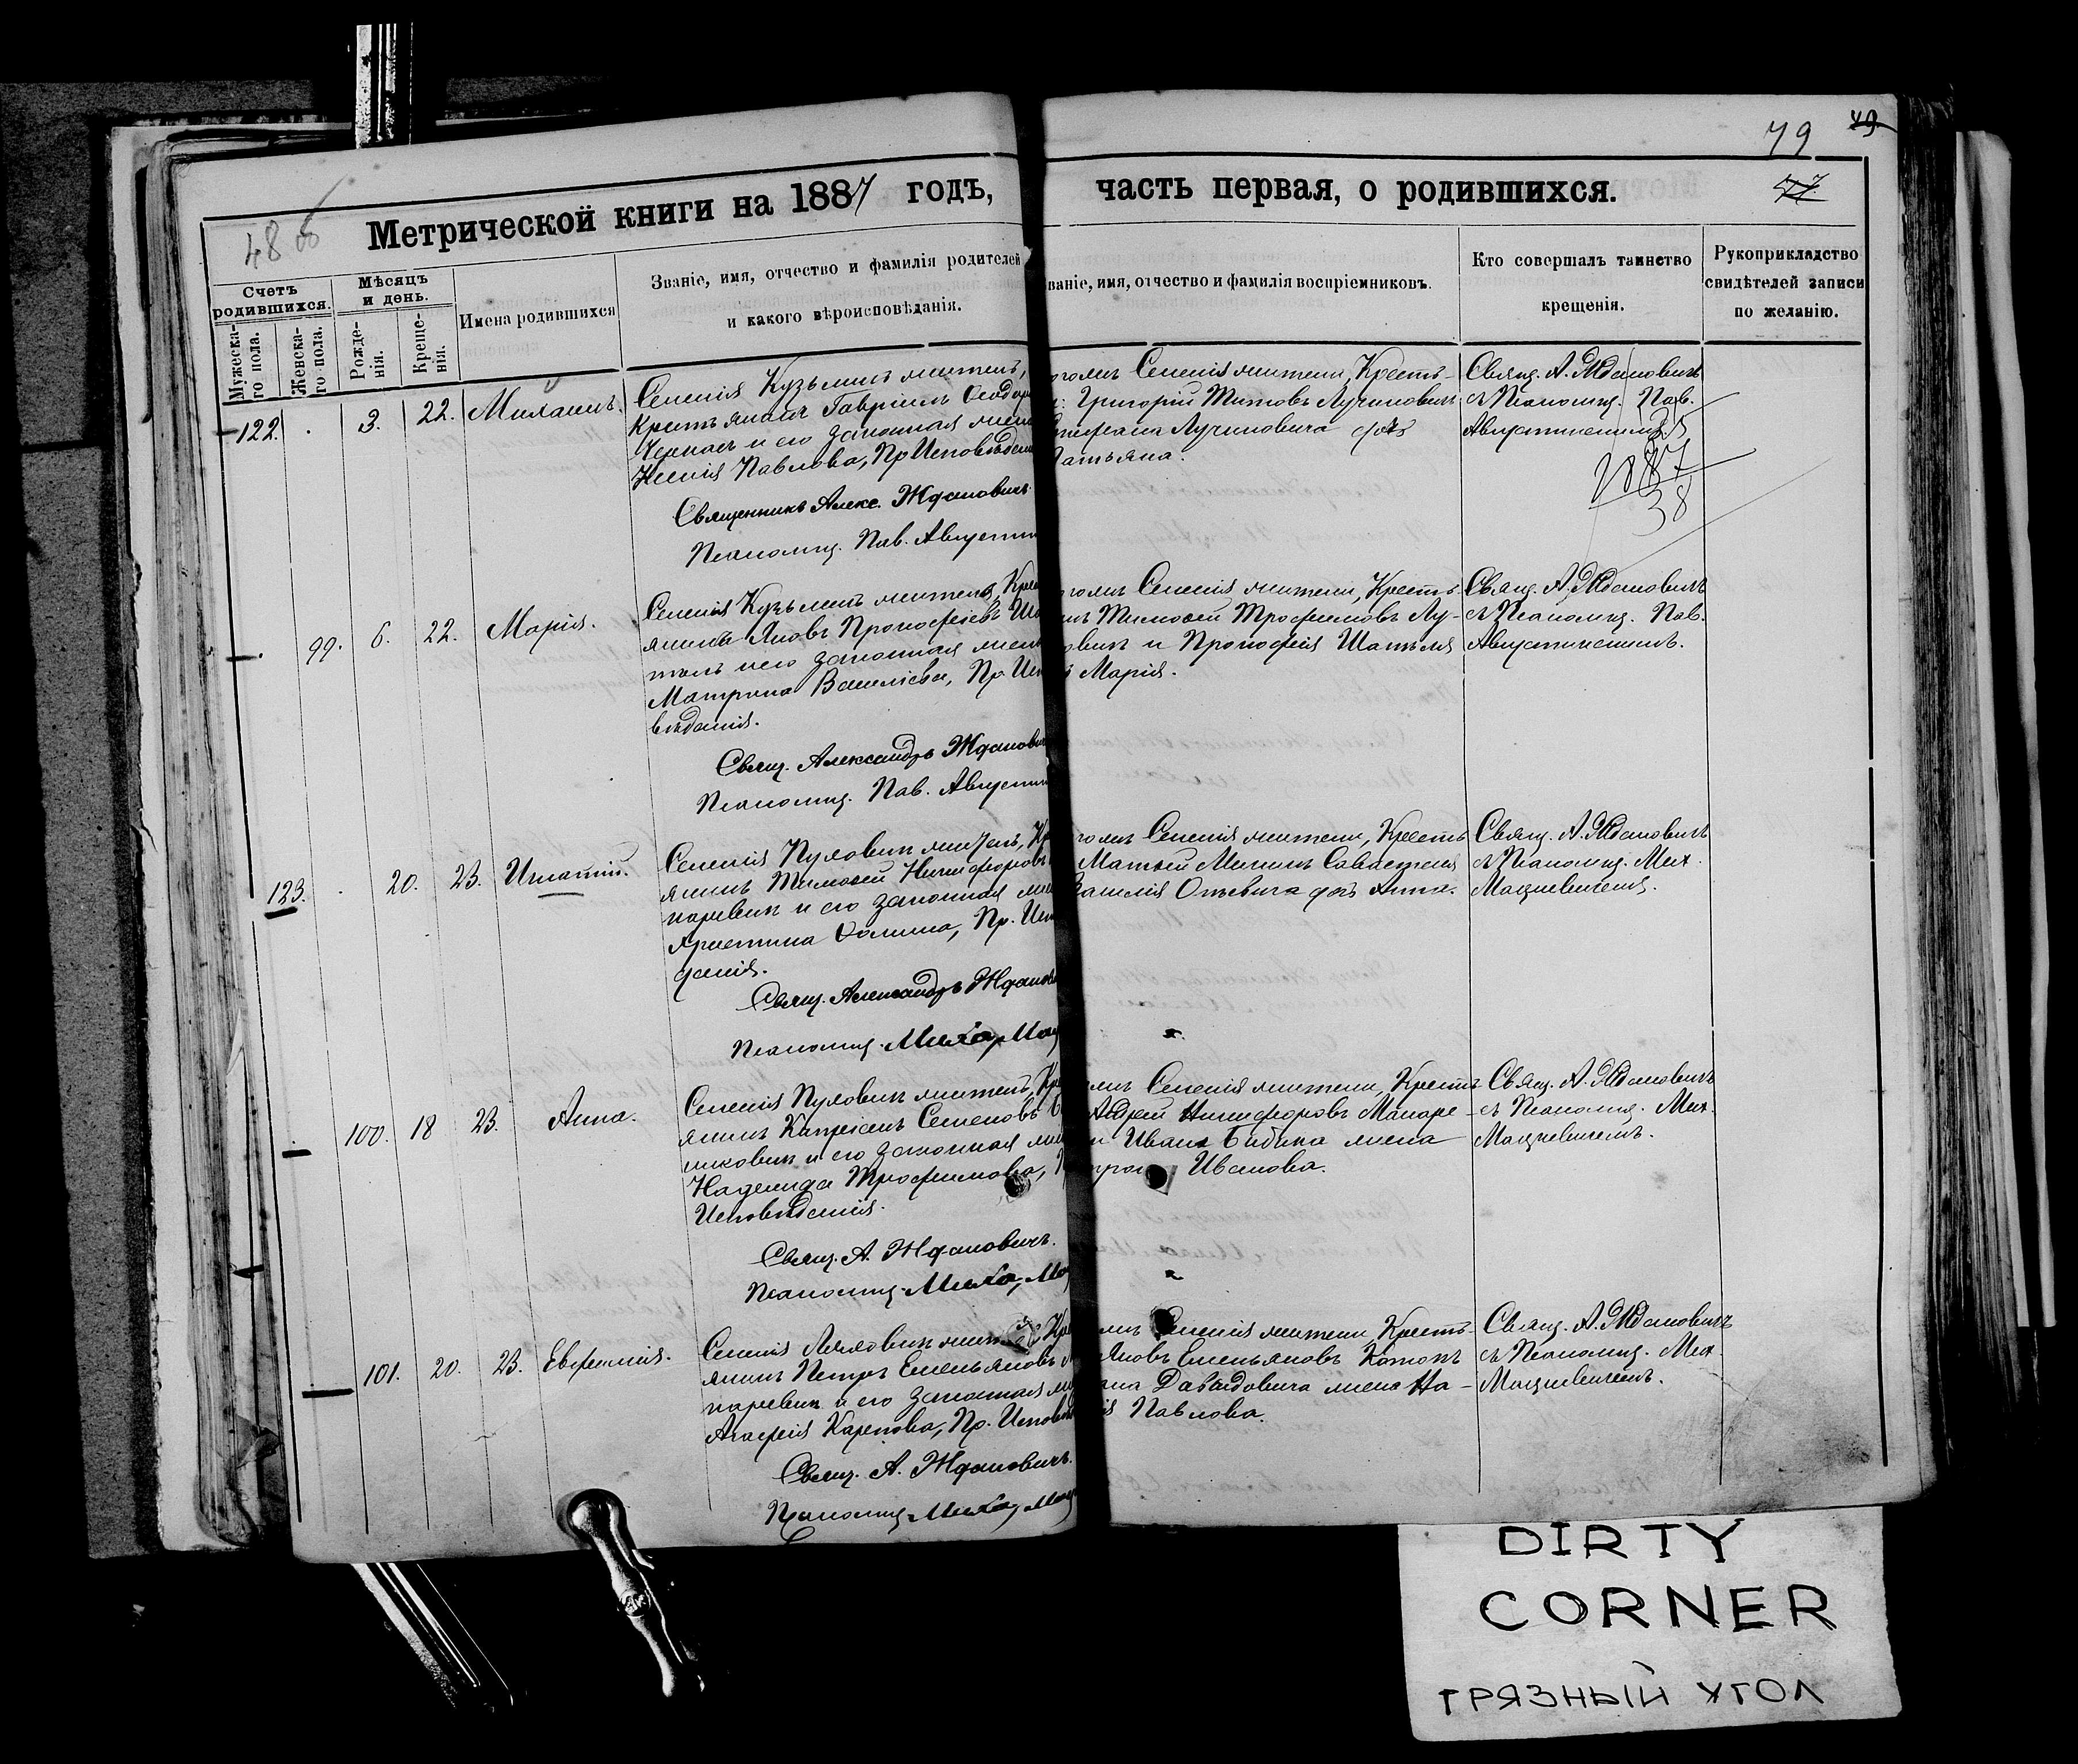 79 49
77.
48 об
Метрической книги на 1887 годъ, часть первая, о родившихся.
Счетъ родившихся.
Мужеска-
го пола.
Женска-
го пола.
Мѣсяцъ
и день.
Рожде-
нія.
Креще-
нія.
Имена родившихся
Званіе, имя, отчество и фамилія родителей
и какого вѣроисповѣданія.
ваніе, имя, отчество и фамилія воспріемниковъ.
Кто совершалъ таинство
крещенія.
Рукоприкладство
свидѣтелей записи
по желанію.
122. 3. 22. Михаилъ.
Селенія Кузьмичъ житель,
Крестьянинъ Гавріилъ Ѳеодор
и его законная жена
Ксенія Павлова, Пр. Исповѣдан
Священникъ Алекс. Ждановичъ
Псаломщ. Пав. Августин
Селенія жители, Кресть-
Григорій Титовъ Лучиновичъ
Стефана Лучиновича дочь
Татьяна.
Свящ. А. Ждановичъ
съ Псаломщ. Пав.
Августиновичемъ
1887
38
99. 6. 22. Марія.
Селенія Кузьмичъ житель, Крес
янинъ Яковъ Прокофіевъ Ша
тыль и его законная жена
Матрона Василіева, Пр. Испо
вѣданія.
Свящ. Александръ Ждановичъ
Псаломщ. Пав. Августин
Селенія жители, Кресть-
Тимоѳей Трофимовъ Лу-
овичъ и Прокофія Шатыля
Марія.
Свящ. А. Ждановичъ
съ Псаломщ. Пав.
Августиновичемъ.
123. 20. 23. Игнатій.
Селенія Пуховичи житель, Кр
янинъ Тимоѳей Никифоровъ
наревичъ и его законная же
Христина Ѳомина, Пр. Испо
данія.
Свящ. Александръ Жданов
Псаломщ. Миха, Мац
Селенія жители, Кресть
Матѳей Мининъ Савастѣя
Василія Онъевича дочь Анна.
Свящ. А. Ждановичъ
съ Псаломщ. Мих.
Мацкевичемъ.
100. 18 23. Анна.
Селенія Пуховичи житель, Кр
янинъ Капріанъ Семеновъ
никовичъ и его законная же
Надежда Трофимова,
Исповѣданія.
Свящ. А. Ждановичъ.
Псаломщ. Миха, Мац
Селенія жители, Кресть
Андрей Никифоровъ Макаре-
и Ивана Бибика жена
Иванова.
Свящ. А. Ждановичъ
съ Псаломщ. Мих.
Мацкевичемъ.
101. 20. 23. Евфимія.
Селенія Ляховичи жит Кре
янинъ Петръ Емельяновъ
наревичъ и его законная же
Агафія Карпова, Пр. Исповѣ
Свящ. А. Ждановичъ.
Псаломщ. Миха, Мац
Селенія жители, Кресть-
Яковъ Емельяновъ Котокъ
Давидовича жена На-
Павлова.
Свящ. А. Ждановичъ
съ Псаломщ. Мих.
Мацкевичемъ.
DIRTY
CORNER
ГРЯЗНЫЙ УГОЛ